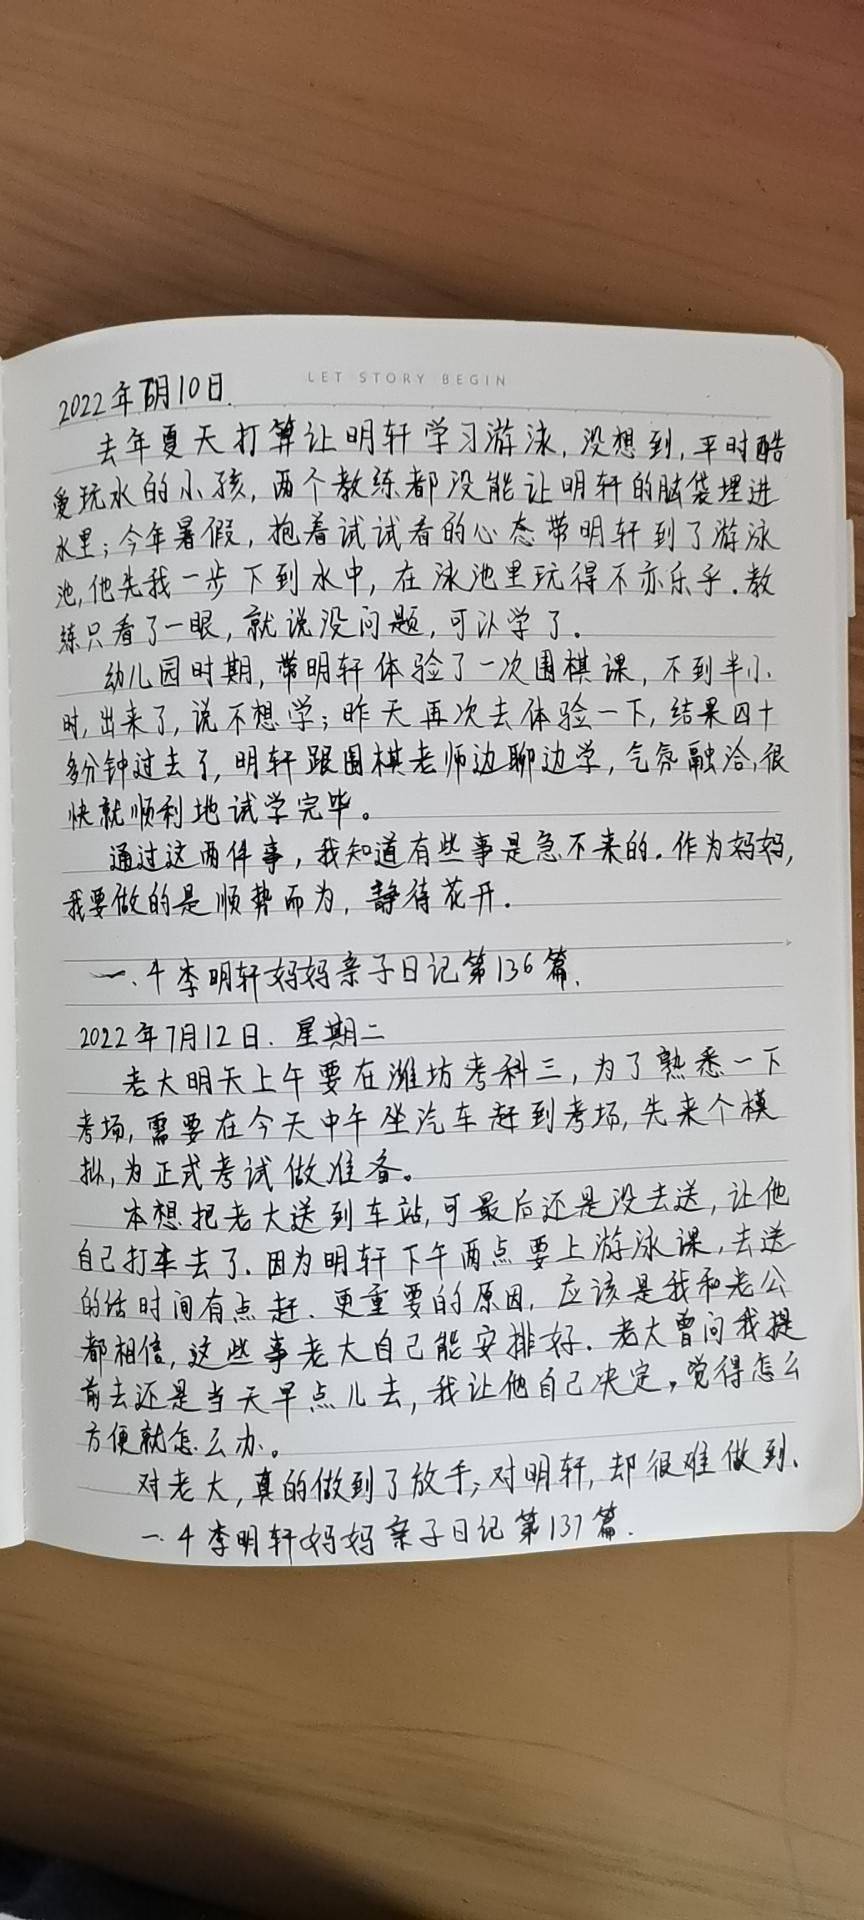 LET STORY BEGIN
2022年7月10日.
去年夏天打算让明轩学习游泳,没想到,平时酷
爱玩水的小孩,两个教练都没能让明轩的脑袋埋进
水里;今年暑假,抱着试试看的心态带明轩到了游泳
池,他先我一步下到水中,在泳池里玩得不亦乐乎.教
练只看了一眼,就说没问题,可以学了。
幼儿园时期,带明轩体验了一次围棋课,不到半小
时,出来了,说不想学;昨天再次去体验一下,结果四十
多分钟过去了,明轩跟围棋老师边聊边学,气氛融洽,很
快就顺利地试学完毕。
通过这两件事,我知道有些事是急不来的.作为妈妈,
我要做的是顺势而为,静待花开.
一.4李明轩妈妈亲子日记第136篇.
2022年7月12日.星期二
老大明天上午要在潍坊考科三,为了熟悉一下
考场,需要在今天中午坐汽车赶到考场,先来个模
拟,为正式考试做准备。
本想把老大送到车站,可最后还是没去送,让他
自己打车去了.因为明轩下午两点要上游泳课,去送
的话时间有点赶.更重要的原因,应该是我和老公
都相信,这些事老大自己能安排好.老大曾问我提
前去还是当天早点儿去,我让他自己决定,觉得怎么
方便就怎么办。
对老大,真的做到了放手;对明轩,却很难做到.
一.4李明轩妈妈亲子日记第137篇.